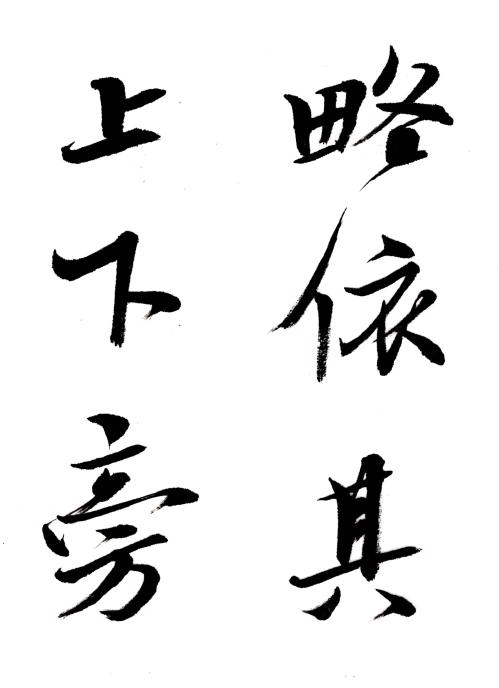 略依其
上下旁